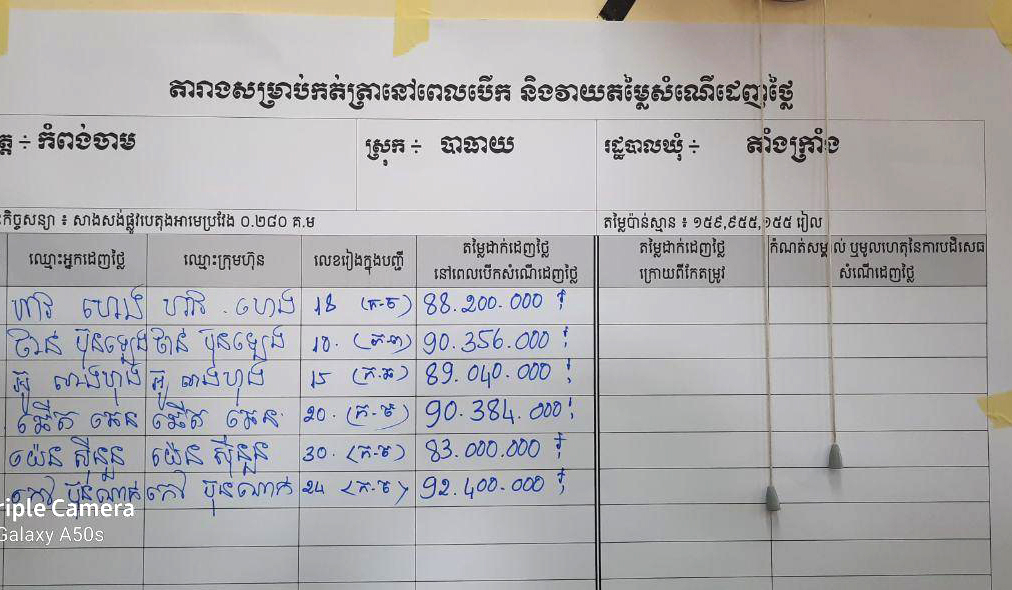 តារាងសម្រាប់កត់ត្រានៅពេលបើក និងវាយតម្លៃសំណើដេញថ្លៃ
ត្ត ÷ កំពង់ចាម ស្រុក ÷ បាធាយ រដ្ឋបាលឃុំ ÷ តាំងក្រាំង
កិច្ចសន្យា ៖ សាងសង់ផ្លូវបេតុងអាមេប្រវែង ០.២៨០ គ.ម តម្លៃប៉ាន់ស្មាន ៖ ១៥៩,៩៥៥,១៥៥ រៀល
ឈ្មោះអ្នកដេញថ្លៃ ឈ្មោះក្រុមហ៊ុន លេខរៀងក្នុងបញ្ជី តម្លៃដាក់ដេញថ្លៃ តម្លៃដាក់ដេញថ្លៃ កំណត់សម្គាល់ ឬមូលហេតុនៃការបដិសេធ
នៅពេលបើកសំណើដេញថ្លៃ ក្រោយពីកែតម្រូវ សំណើដេញថ្លៃ
ហាវ ហេង ហាវ . ហេង 18 88.200.000 ៛
ថាន់ ប៊ុនឡេង ថាន់ ប៊ុនឡេង 10. 90.356.000 ៛
អ៊ូ ឆាងហុង អ៊ូ ឆាងហុង 15 89.040.000 ៛
20. 90.384.000 ៛
យ៉េន ស៊ីនួន យ៉េន ស៊ីនួន 30. 83.000.000 ៛
កៅ ប៊ុនណាក់ កៅ ប៊ុនណាក់ 24 92.400.000 ៛
riple Camera
Galaxy A50s